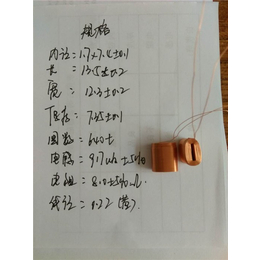 规格
内径:1.7×7.4±0.1
长:13.5±0.2
宽:12.3±0.2
厚:7.35±0.1
圈数:640t
电感:917uh±5%
电阻:8.0±5%Ω
线径:0.22